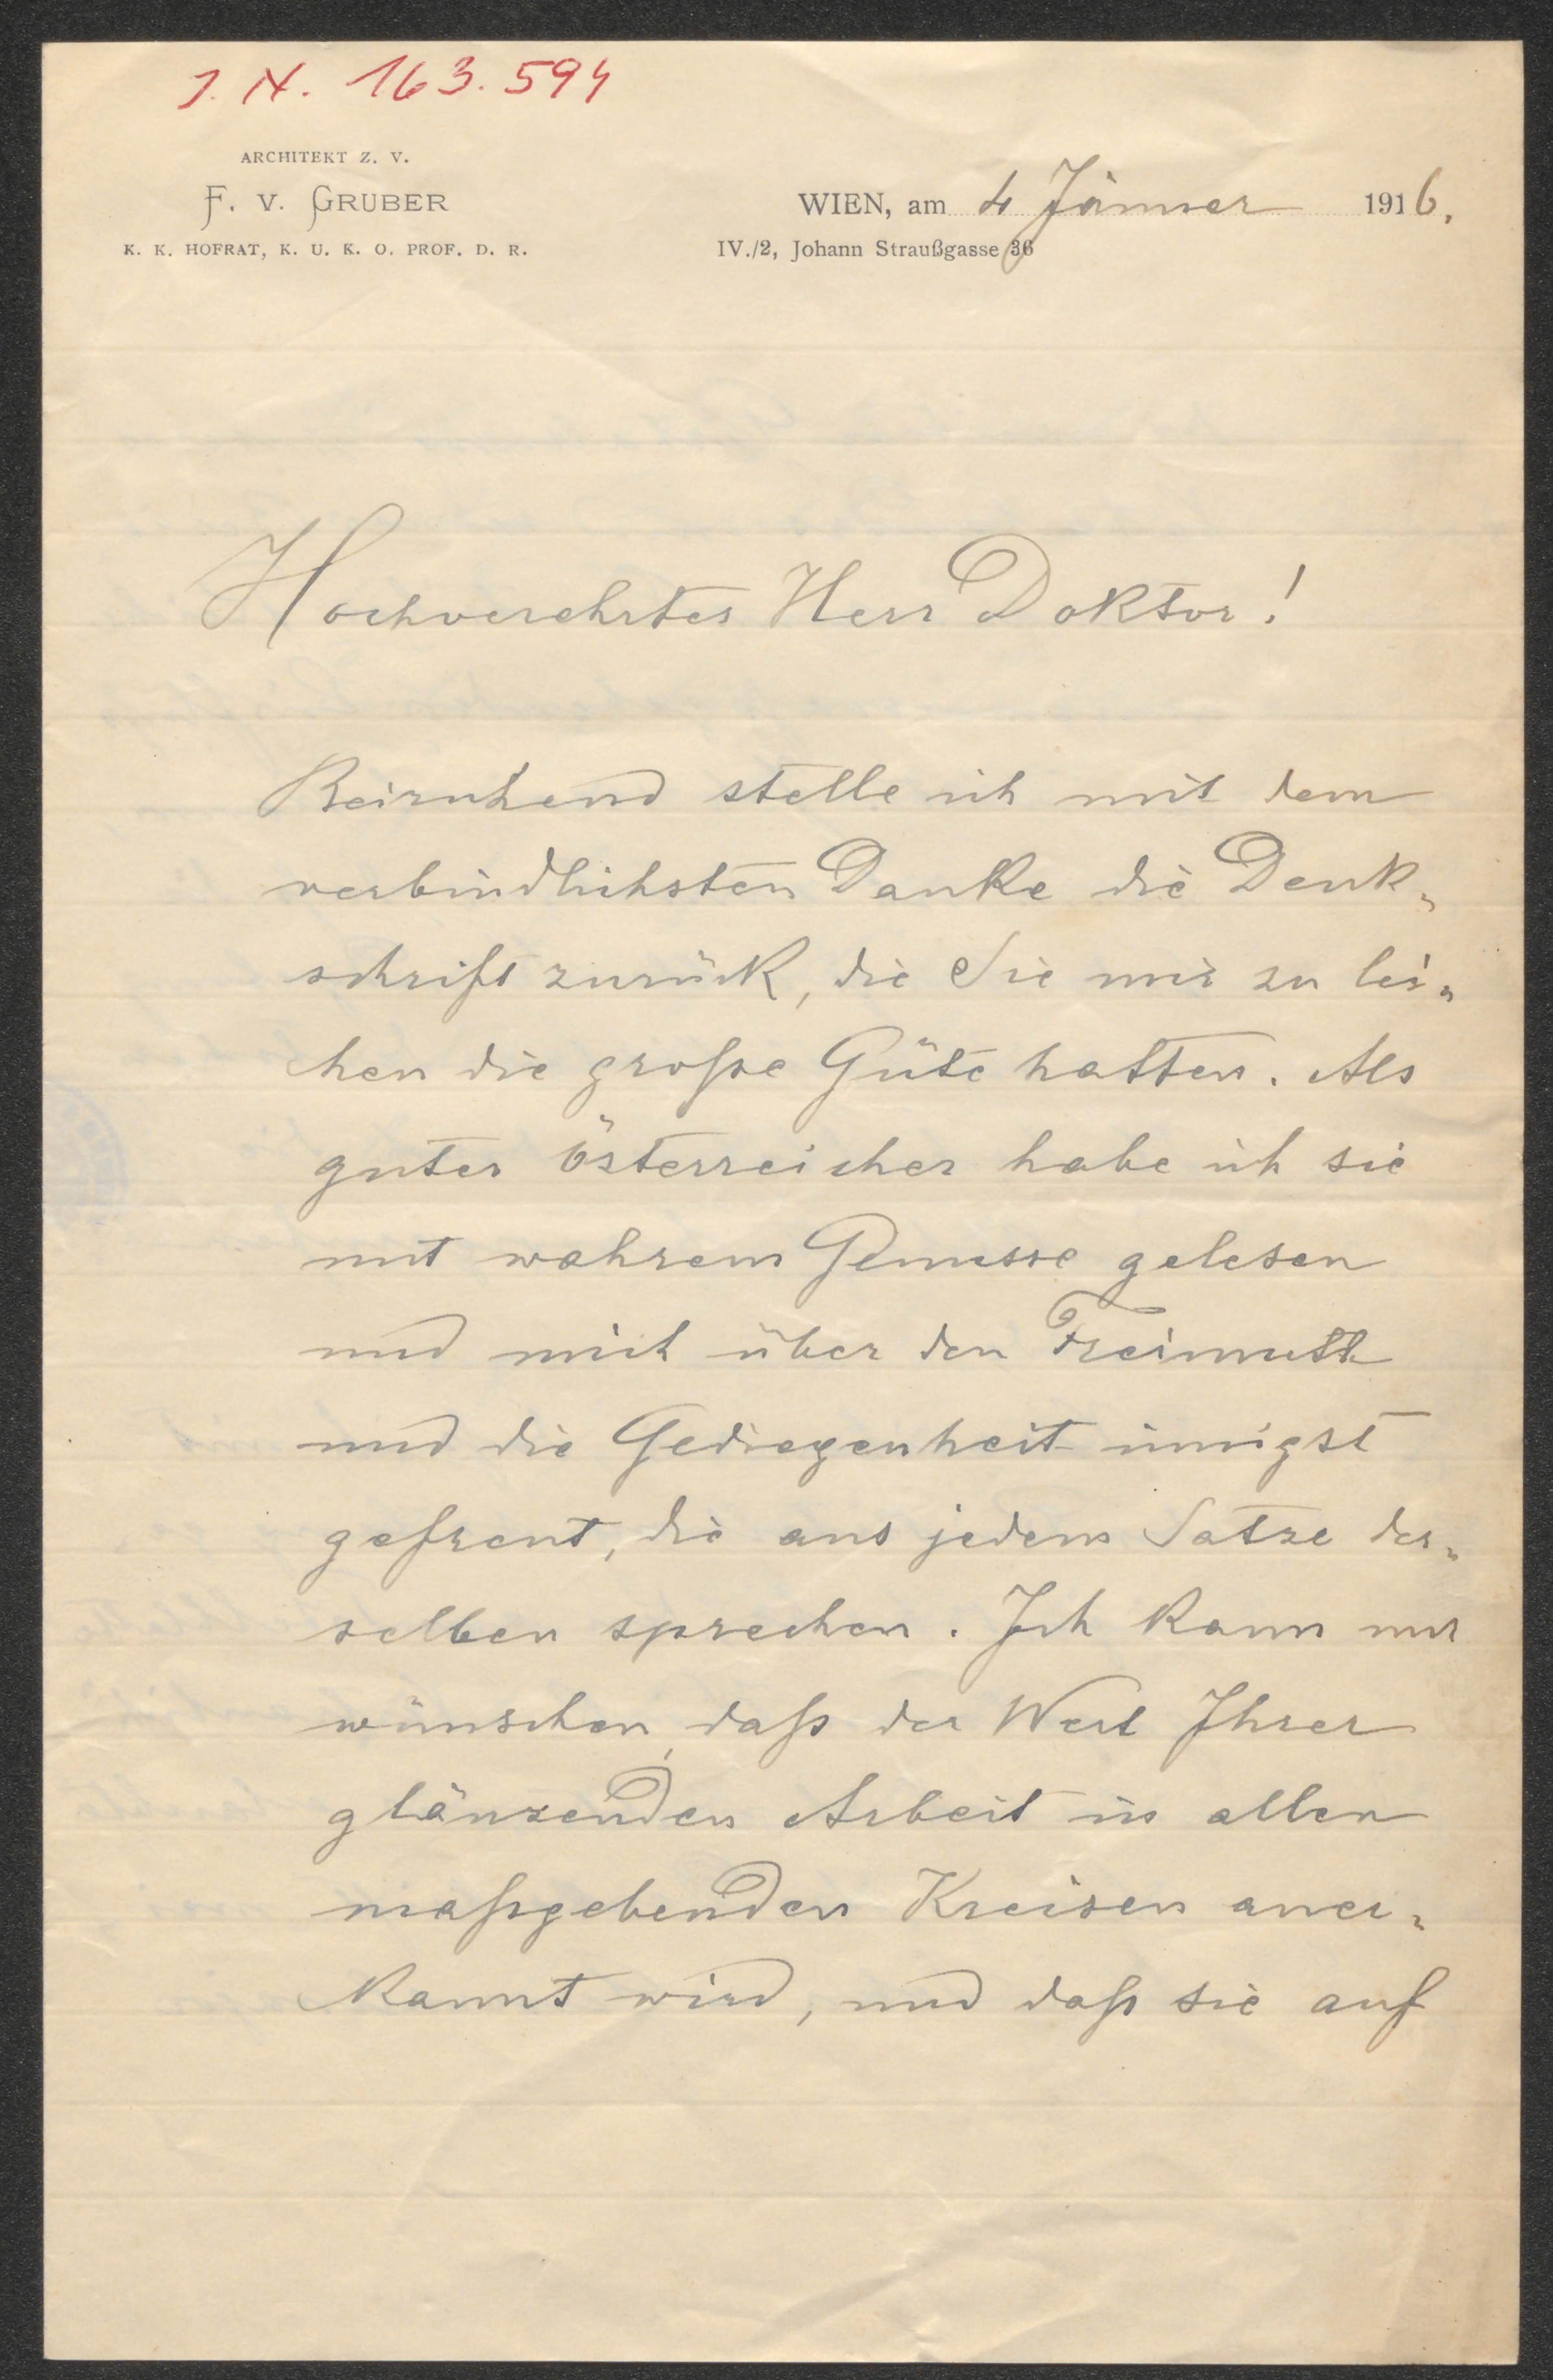 J. N. 163.594
ARCHITEKT Z. V.
F. V. GRUBER
K. K. HOFRAT, K. U. K. O. PROF. D. R.
WIEN, am 4 Jänner 1916.
IV./2, Johann Straußgasse 36
Hochverehrter Herr Doktor!
Beiruhend stelle ich mit dem
verbindlichsten Danke die Denk=
schrift zurück, die Sie mir zu lei=
hen die große Güte hatten. Als
guter Österreicher habe ich sie
mit wahrem Genusse gelesen
und mich über den Freimuth
und die Gediegenheit innigst
gefreut, die aus jedem Satze der=
selben sprechen. Ich kann nur
wünschen, daß der Wert Ihrer
glänzenden Arbeit in allen
maßgebenden Kreisen aner=
kannt wird, und daß sie auf